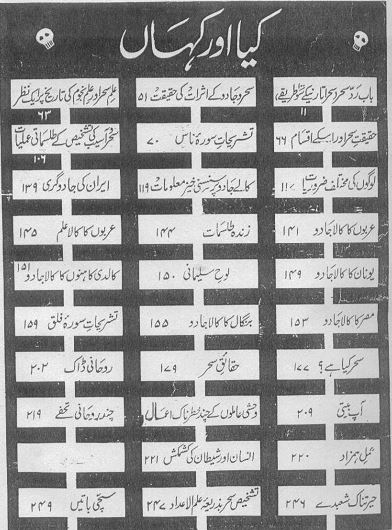 کیا اور کہاں
باب ردِّ سحر سحر اتارنیکے سو طریقے
۱۱
سحر و جادو کے اثرات کی حقیقت ۵۱
علمِ سحر اور علمِ نجوم کی تاریخ پر ایک نظر
۶۳
حقیقتِ سحر اور اسکے اقسام ۶۶
تشریحاتِ سورۂ ناس ۷۰
سحر و آسیب کی تشخیص کے طلسماتی عملیات
۱۰۶
لوگوں کی مختلف ضروریات ۱۱۷
کالے جادو پر سنسنی خیز معلومات ۱۱۹
ایران کی جادوگری ۱۳۹
عربوں کا کالا جادو ۱۴۱
زندہ طلسمات ۱۴۴
عربوں کا کالا علم ۱۴۵
یونان کا کالا جادو ۱۴۹
لوحِ سلیمانی ۱۵۰
کالدی کاہنوں کا کالا جادو ۱۵۱
مصر کا کالا جادو ۱۵۳
بنگال کا کالا جادو ۱۵۵
تشریحات سورۂ فلق ۱۵۹
سحر کیا ہے؟ ۱۷۷
حقائقِ سحر ۱۷۹
روحانی ڈاک ۲۰۲
آپ بیتی ۲۰۹
وحشی عاملوں کے چند خطرناک اعمال
چند روحانی تحفے ۲۱۹
عملِ ہمزاد ۲۲۰
انسان اور شیطان کی کشمکش ۲۲۱
حیرتناک شعبدے ۲۴۶
تشخیصِ سحر بذریعۂ علم الاعداد ۲۴۷
سچی باتیں ۲۴۹